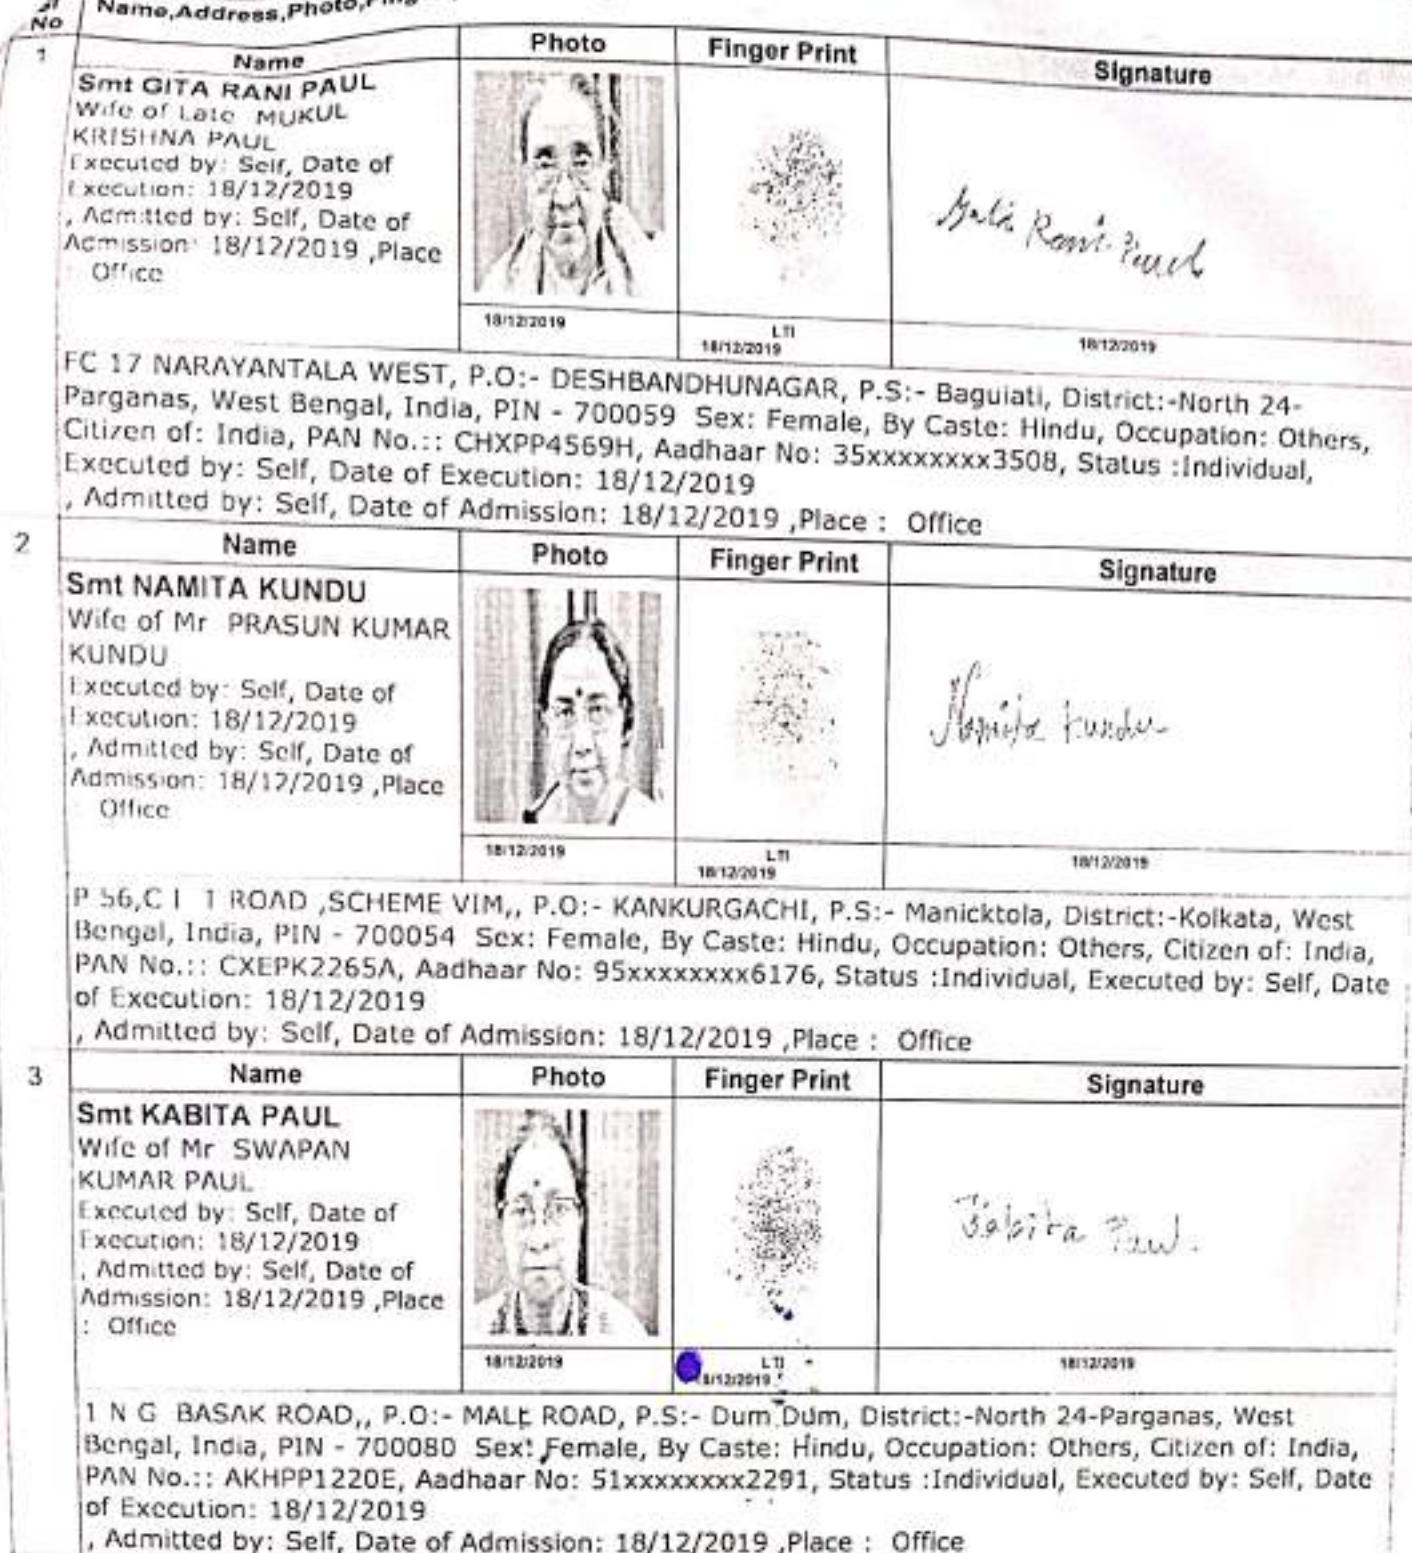 Sl
No
Name,Address,Photo,
1
Name
Photo
Finger Print
Signature
Smt GITA RANI PAUL
Wife of Late MUKUL
KRISHNA PAUL
Executed by: Self, Date of
Execution: 18/12/2019
, Admitted by: Self, Date of
Admission: 18/12/2019 ,Place
: Office
Gita Rani Paul
18/12/2019
LTI
18/12/2019
18/12/2019
FC 17 NARAYANTALA WEST, P.O:- DESHBANDHUNAGAR, P.S:- Baguiati, District:-North 24-
Parganas, West Bengal, India, PIN - 700059 Sex: Female, By Caste: Hindu, Occupation: Others,
Citizen of: India, PAN No.:: CHXPP4569H, Aadhaar No: 35xxxxxxxx3508, Status :Individual,
Executed by: Self, Date of Execution: 18/12/2019
, Admitted by: Self, Date of Admission: 18/12/2019 ,Place : Office
2
Name
Photo
Finger Print
Signature
Smt NAMITA KUNDU
Wife of Mr PRASUN KUMAR
KUNDU
Executed by: Self, Date of
Execution: 18/12/2019
, Admitted by: Self, Date of
Admission: 18/12/2019 ,Place
Office
Namita Kundu
18/12/2019
LTI
18/12/2019
18/12/2019
P 56,C I T ROAD ,SCHEME VIM,, P.O:- KANKURGACHI, P.S:- Manicktola, District:-Kolkata, West
Bengal, India, PIN - 700054 Sex: Female, By Caste: Hindu, Occupation: Others, Citizen of: India,
PAN No.:: CXEPK2265A, Aadhaar No: 95xxxxxxxx6176, Status :Individual, Executed by: Self, Date
of Execution: 18/12/2019
, Admitted by: Self, Date of Admission: 18/12/2019 ,Place : Office
3
Name
Photo
Finger Print
Signature
Smt KABITA PAUL
Wife of Mr SWAPAN
KUMAR PAUL
Executed by: Self, Date of
Execution: 18/12/2019
, Admitted by: Self, Date of
Admission: 18/12/2019 ,Place
: Office
Kabita Paul.
18/12/2019
LTI
18/12/2019
18/12/2019
1 N G BASAK ROAD,, P.O:- MALL ROAD, P.S:- Dum Dum, District:-North 24-Parganas, West
Bengal, India, PIN - 700080 Sex: Female, By Caste: Hindu, Occupation: Others, Citizen of: India,
PAN No.:: AKHPP1220E, Aadhaar No: 51xxxxxxxx2291, Status :Individual, Executed by: Self, Date
of Execution: 18/12/2019
, Admitted by: Self, Date of Admission: 18/12/2019 ,Place : Office